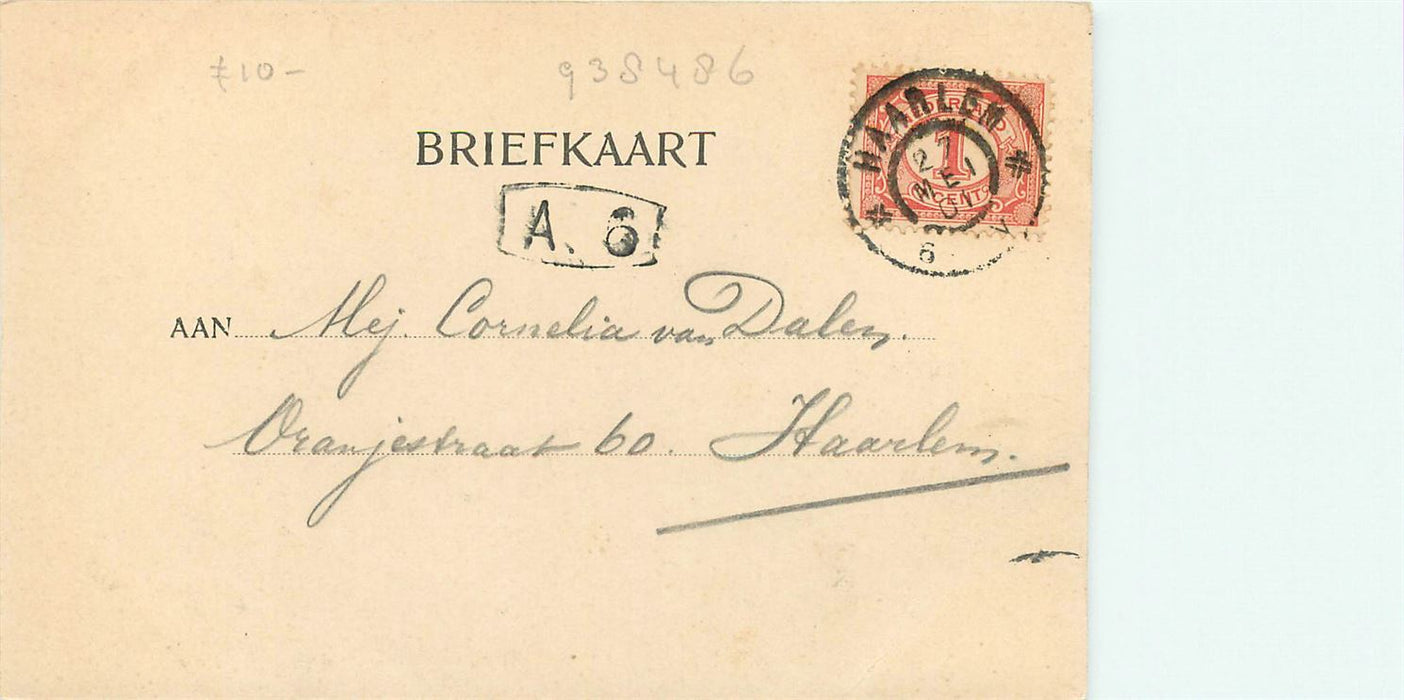 £10- 938486
BRIEFKAART
A. 6
HAARLEM
NEDERLAND
1
CENT
27
MEI
01
6 V
AAN Mej. Cornelia van Dalen.
Oranjestraat 60. Haarlem.